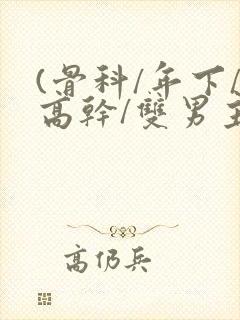 (骨科/年下/
高幹/雙男主
高仍兵